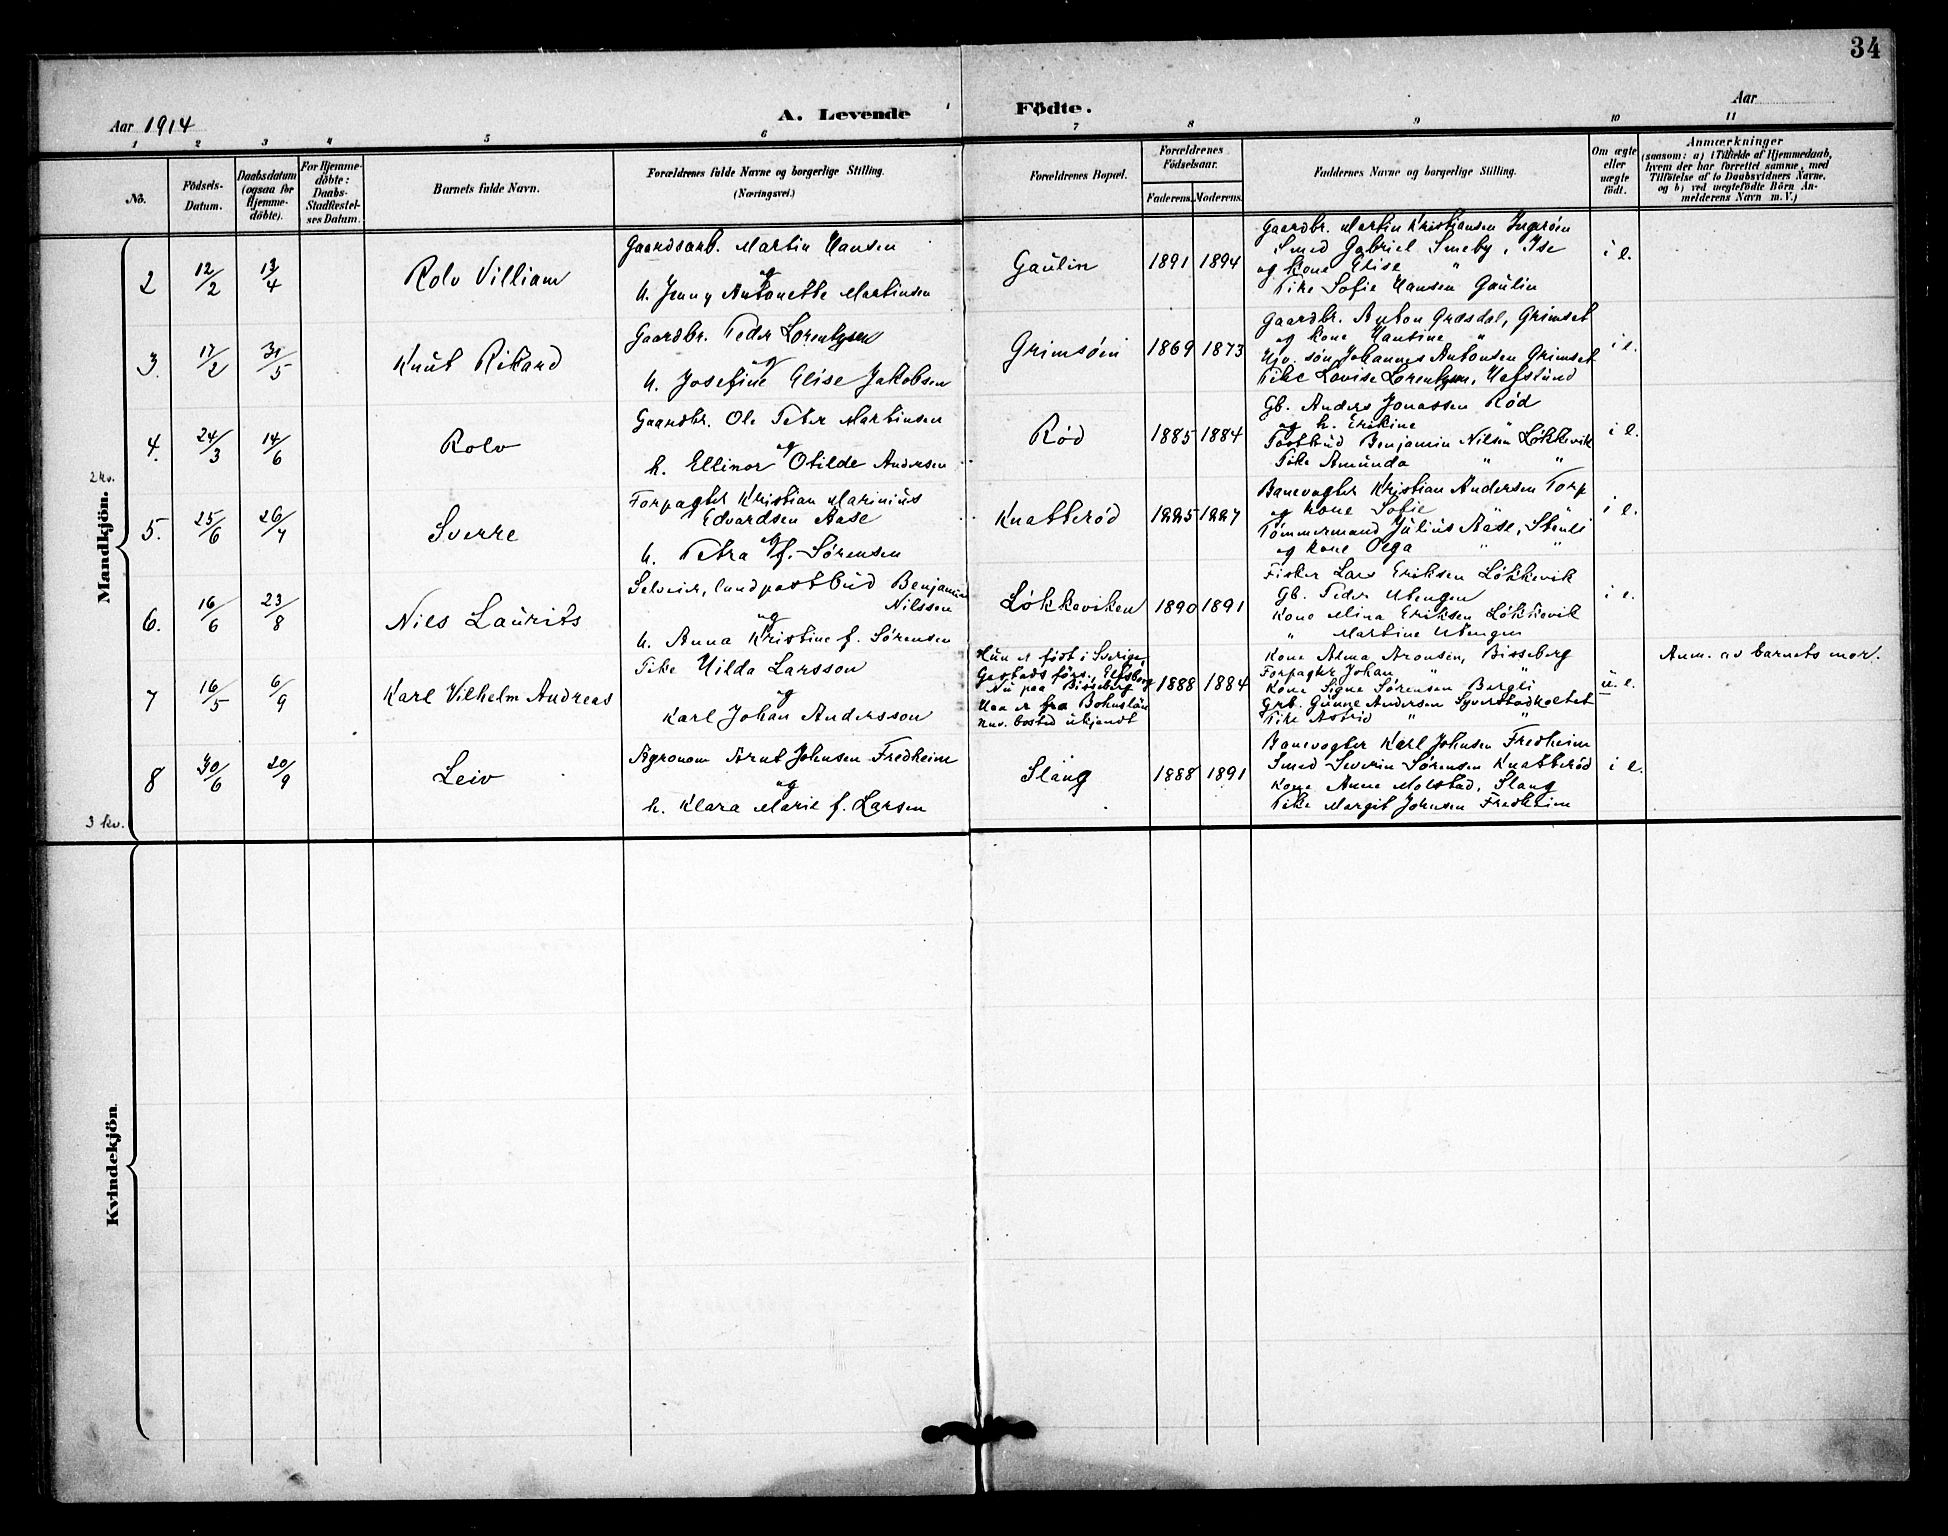 34
Aar 1914
A. Levende Födte.
Aar
1 2 3 4 5 6 7 8 9 10 11
No.
Födsels-
Datum.
Daabsdatum
(ogsaa for
Hjemme-
döbte).
For Hjemme-
döbte:
Daabs-
Stadfæstel-
ses Datum.
Barnets fulde Navn.
Forældrenes fulde Navne og borgerlige Stilling.
(Næringsvei.)
Forældrenes Bopæl.
Forældrenes
Födselsaar.
Faderens. Moderens.
Faddernes Navne og borgerlige Stilling.
Om ægte
eller
uægte
födt.
Anmærkninger
(saasom: a) i Tilfælde af Hjemmedaab,
hvem der har forrettet samme, med
Tilföielse af to Daabsvidners Navne,
og b) ved uægtefödte Börn An-
melderens Navn m. V.)
Mandkjön.
2 12/2 13/4 Rolv Villiam
Gaardsarb. Martin Hansen
og
h. Jenny Antonette Martinsen
Gaulin 1891 1894
Gaardbr. Martin Kristiansen Ingrøin
Smed Gabriel Smeby, Ise
og kone Elise "
Pike Sofie Hansen Gaulin
i e.
3. 17/2 31/5 Knut Rikard
Gaardbr. Peder Lorentzen
og
h. Josefine Elise Jakobsen
Grimsøin 1869 1873
Gaardbr. Anton Græsdal, Grimset
og kone Hantine "
Ujv. søn Johannes Antonsen Grimset
Pike Lovise Lorentzen, Hafslund
i e.
4. 24/3 14/6 Rolv
Gaardbr. Ole Peter Martinsen
og
h. Ellinor Otilde Andersen
Rød 1885 1884
Gb. Anders Jonassen Rød
og h. Erikine "
Postbud Benjamin Nilsen Løkkevik
Pike Amunda " "
i e.
2 kv.
5. 25/6 26/7 Sverre
Forpagter Kristian Marinius
Edvardsen Aase
og
h. Petra f. Sørensen
Knatterød 1885 1887
Banevogter Kristian Andersen Torp
og kone Sofie "
Tømmermand Julius Aase, Stuli
og kone Olga " "
i e.
6. 16/6 23/8 Nils Laurits
Selveier, landpostbud Benjamin
Nilssen
og
h. Anna Kristine f. Sørensen
Løkkeviken 1890 1891
Fisker Lars Eriksen Løkkevik
Gb. Peder Utengen
Kone Mina Eriksen Løkkevik
" Martine Utengen
i e.
7 16/5 6/9 Karl Vilhelm Andreas
Pike Hilda Larsson
og
Karl Johan Andersson
Hun er født i Sverige,
Gestads förs., Elfsborg
Nu paa Bisseberg
Han er fra Bohuslän
nuv. bosted ukjendt
1888 1884
Kone Alma Aronsen, Bisseberg
Forpagter Johan " "
Kone Signe Sørensen Bergli
Grb. Gunne Andersen Syverstadholtet
Pike Astrid " "
u. e.
Anm. av barnets mor.
8 30/6 20/9 Leiv
Agronom Arnt Johnsen Fredheim
og
h. Klara Marie f. Larsen
Slang 1888 1891
Banevogter Karl Johnsen Fredheim
Smed Severin Sørensen Knatterød
Kone Anna Molstad, Slang
Pike Margit Johnsen Fredheim
i e.
3 kv.
Kvindekjön.